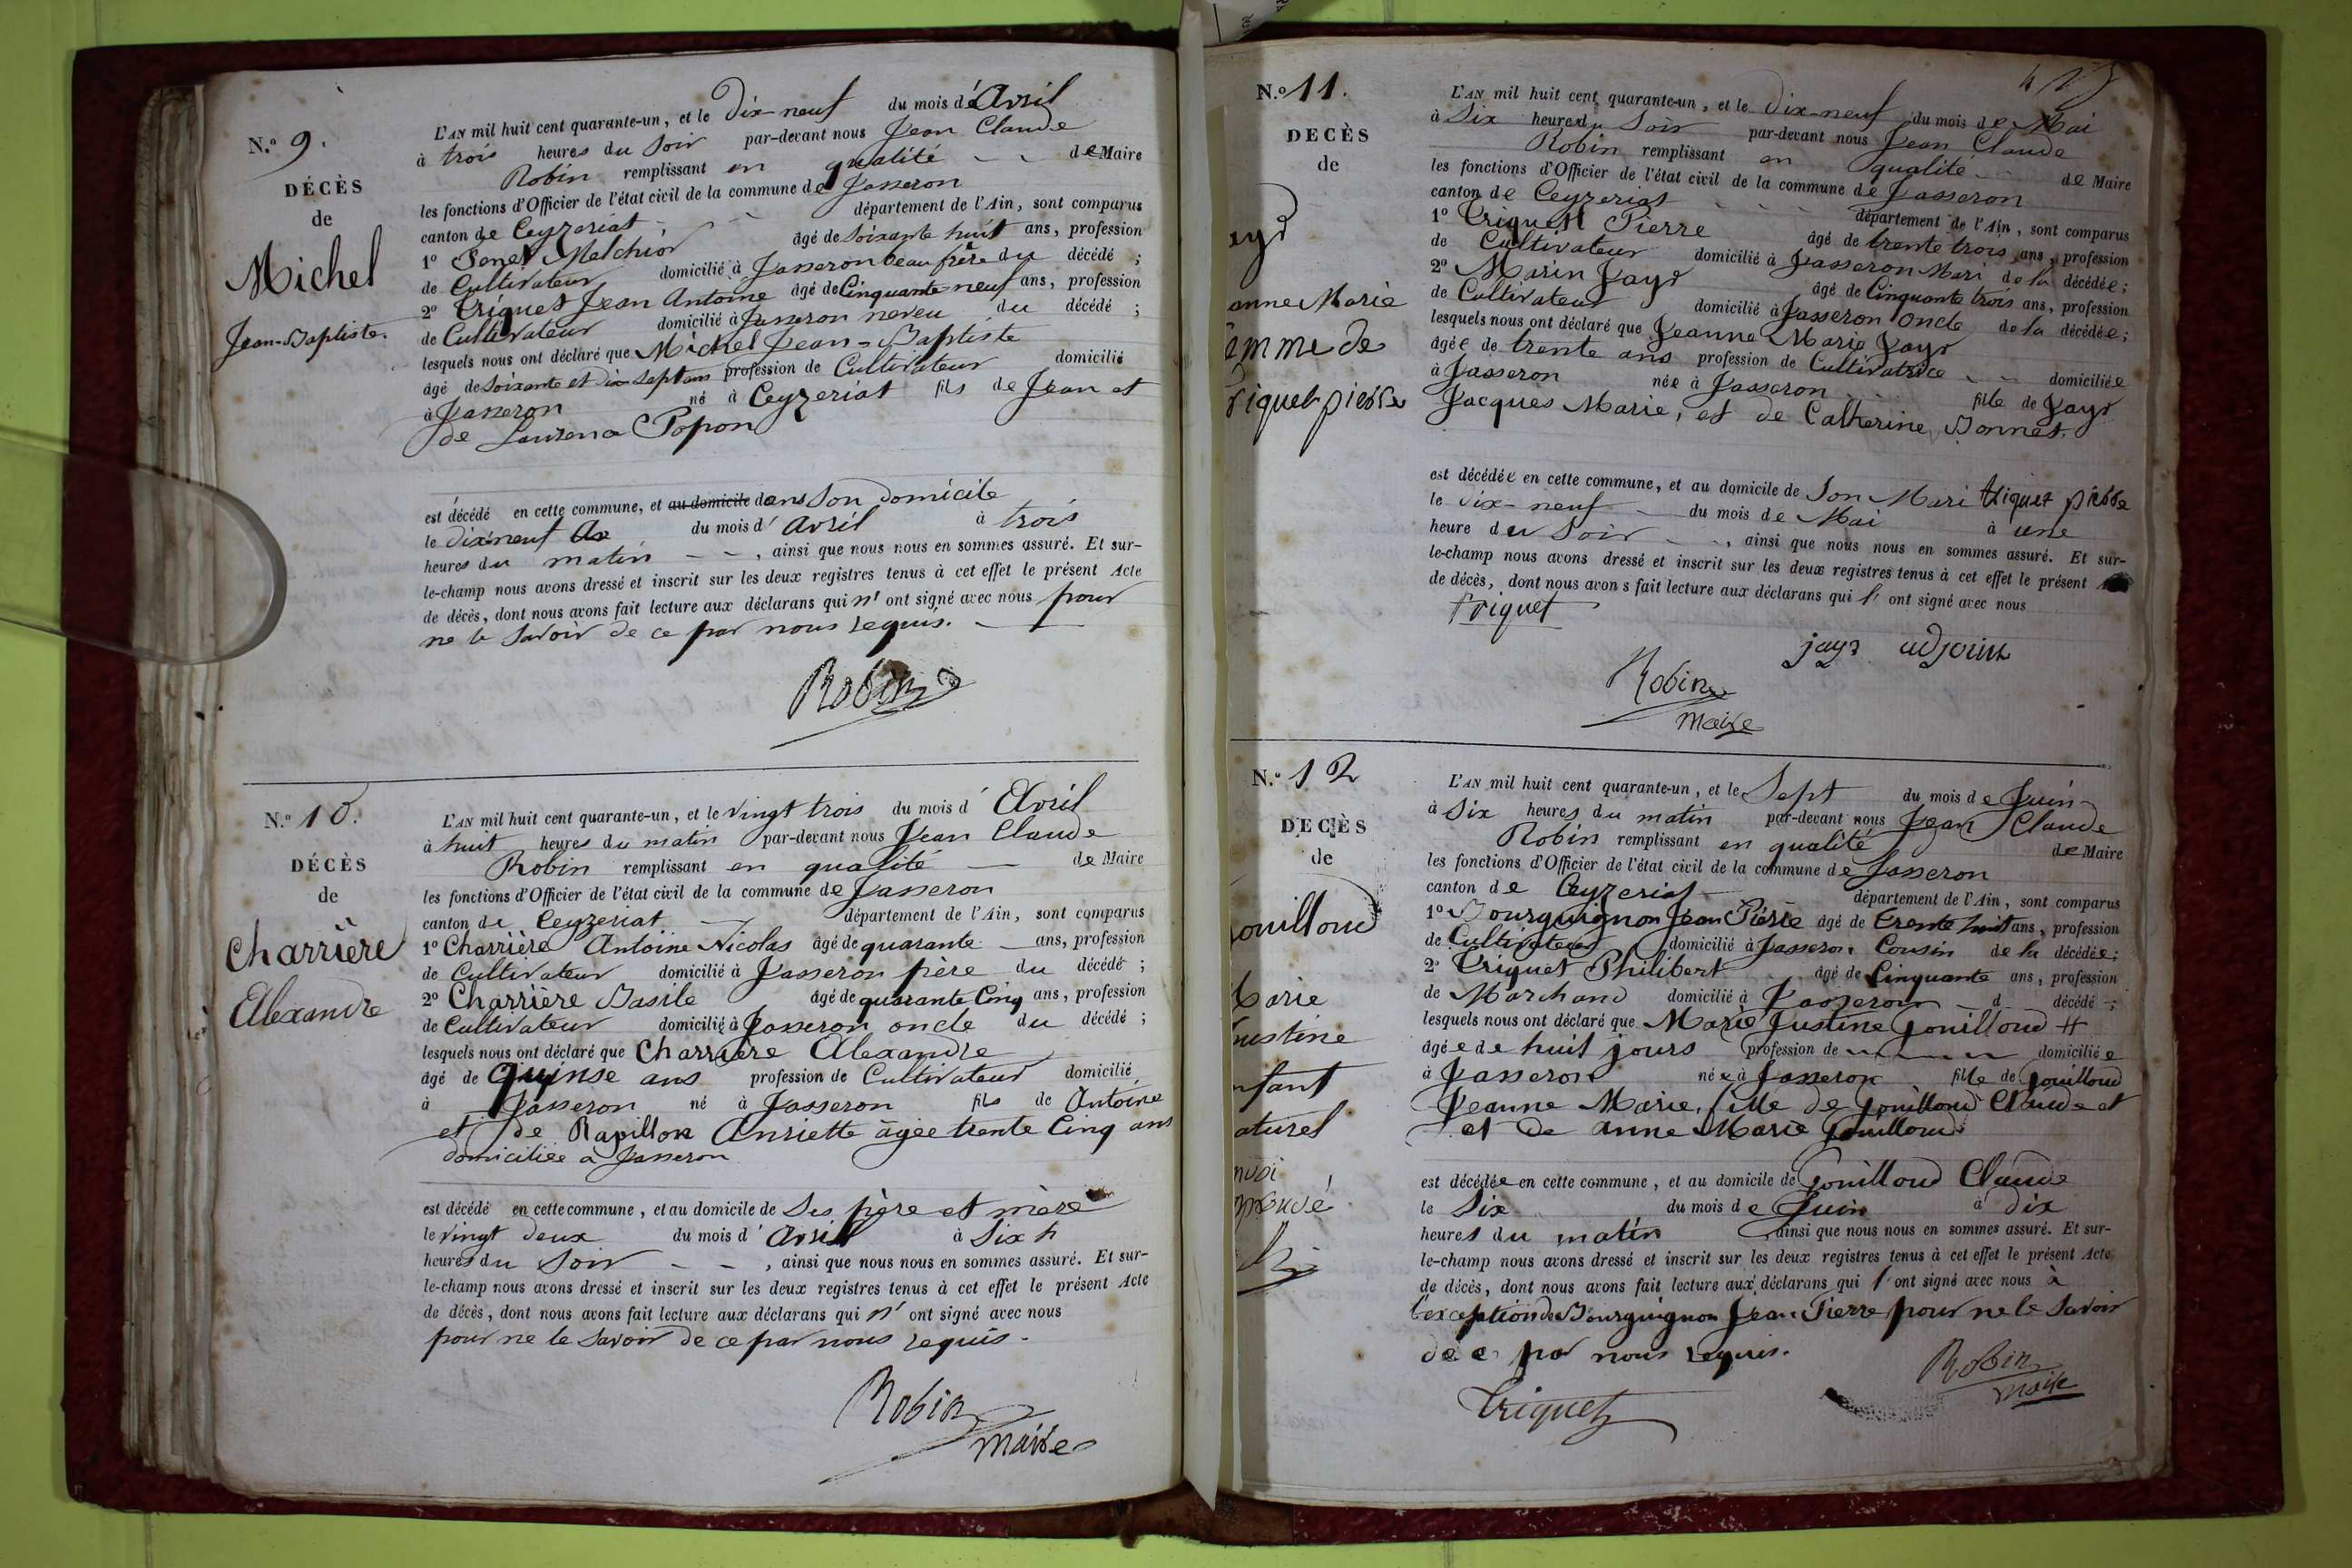 N.o 9.
DÉCÈS
de
Michel
Jean-Baptiste.
L'AN mil huit cent quarante-un, et le Dix-neuf du mois d'Avril
à trois heures du Soir par-devant nous Jean Claude
Robin remplissant en qualité de Maire
les fonctions d'Officier de l'état civil de la commune de Jasseron
canton de Ceyzeriat département de l'Ain, sont comparus
1o Melchior âgé de Soixante huit ans, profession
de Cultivateur domicilié à Jasseron beau frère du décédé ;
2o Triquet Jean Antoine âgé de Cinquante neuf ans, profession
de Cultivateur domicilié à Jasseron neveu du décédé ;
lesquels nous ont déclaré que Michel Jean-Baptiste
âgé de Soixante et Dix Sept ans profession de Cultivateur domicilié
à Jasseron né à Ceyzeriat fils de Jean et
de Laurence Popon
est décédé en cette commune, et au domicile dans Son Domicile
le Dix neuf du mois d'Avril à trois
heures du matin, ainsi que nous nous en sommes assuré. Et sur-
le-champ nous avons dressé et inscrit sur les deux registres tenus à cet effet le présent Acte
de décès, dont nous avons fait lecture aux déclarans qui n'ont signé avec nous pour
ne le Savoir de ce par nous requis.
Robin
N.o 10.
DÉCÈS
de
Charrière
Alexandre
L'AN mil huit cent quarante-un, et le Vingt trois du mois d'Avril
à huit heures du matin par-devant nous Jean Claude
Robin remplissant en qualité de Maire
les fonctions d'Officier de l'état civil de la commune de Jasseron
canton de Ceyzeriat département de l'Ain, sont comparus
1o Charrière Antoine Nicolas âgé de quarante ans, profession
de Cultivateur domicilié à Jasseron père du décédé ;
2o Charrière Basile âgé de quarante Cinq ans, profession
de Cultivateur domicilié à Jasseron oncle du décédé ;
lesquels nous ont déclaré que Charrière Alexandre
âgé de quinse ans profession de Cultivateur domicilié
à Jasseron né à Jasseron fils de Antoine
et de Rapillon Anriette âgée trente Cinq ans
domiciliée à Jasseron
est décédé en cette commune, et au domicile de Ses père et mère
le Vingt Deux du mois d'Avril à Six h
heures du Soir, ainsi que nous nous en sommes assuré. Et sur-
le-champ nous avons dressé et inscrit sur les deux registres tenus à cet effet le présent Acte
de décès, dont nous avons fait lecture aux déclarans qui n'ont signé avec nous
pour ne le Savoir de ce par nous requis.
Robin
maire
N.o 11.
DECÈS
de
ayr
anne Marie
emme de
riquet pierre
L'AN mil huit cent quarante-un, et le Dix-neuf du mois de Mai
à Six heures du Soir par-devant nous Jean Claude
Robin remplissant en qualité de Maire
les fonctions d'Officier de l'état civil de la commune de Jasseron
canton de Ceyzeriat département de l'Ain, sont comparus
1o Triquet Pierre âgé de trente trois ans, profession
de Cultivateur domicilié à Jasseron Mari de la décédée ;
2o Marin Jayr âgé de Cinquante trois ans, profession
de Cultivateur domicilié à Jasseron Oncle de la décédée ;
lesquels nous ont déclaré que Jeanne Marie Jayr
âgée de trente ans profession de Cultivatrice domiciliée
à Jasseron née à Jasseron fille de Jayr
Jacques Marie, et de Catherine Bonnet.
est décédée en cette commune, et au domicile de Son Mari triquet pierre
le Dix-neuf du mois de Mai à une
heure du Soir, ainsi que nous nous en sommes assuré. Et sur-
le-champ nous avons dressé et inscrit sur les deux registres tenus à cet effet le présent
de décès, dont nous avons fait lecture aux déclarans qui l'ont signé avec nous
Triquet
jayr adjoint
Robin
Maire
N.o 12
DECÈS
de
ouilloud
Marie
ustine
nfant
aturel
L'AN mil huit cent quarante-un, et le Sept du mois de Juin
à Six heures du matin par-devant nous Jean Claude
Robin remplissant en qualité de Maire
les fonctions d'Officier de l'état civil de la commune de Jasseron
canton de Ceyzeriat département de l'Ain, sont comparus
1o Bourguignon Jean Pierre âgé de trente huit ans, profession
de Cultivateur domicilié à Jasseron Cousin de la décédée ;
2o Triquet Philibert âgé de Cinquante ans, profession
de Marchand domicilié à Jasseron d décédé ;
lesquels nous ont déclaré que Marie Justine gouilloud #
âgée de huit jours profession de domiciliée
à Jasseron née à Jasseron fille de gouilloud
Jeanne Marie, fille de gouilloud Claude et
et de anne Marie gouilloud
est décédée en cette commune, et au domicile de gouilloud Claude
le Six du mois de Juin à dix
heures du matin ainsi que nous nous en sommes assuré. Et sur-
le-champ nous avons dressé et inscrit sur les deux registres tenus à cet effet le présent Acte
de décès, dont nous avons fait lecture aux déclarans qui l'ont signé avec nous à
l'exception de Bourguignon Jean Pierre pour ne le Savoir
de ce par nous requis.
Robin
maire
Triquet